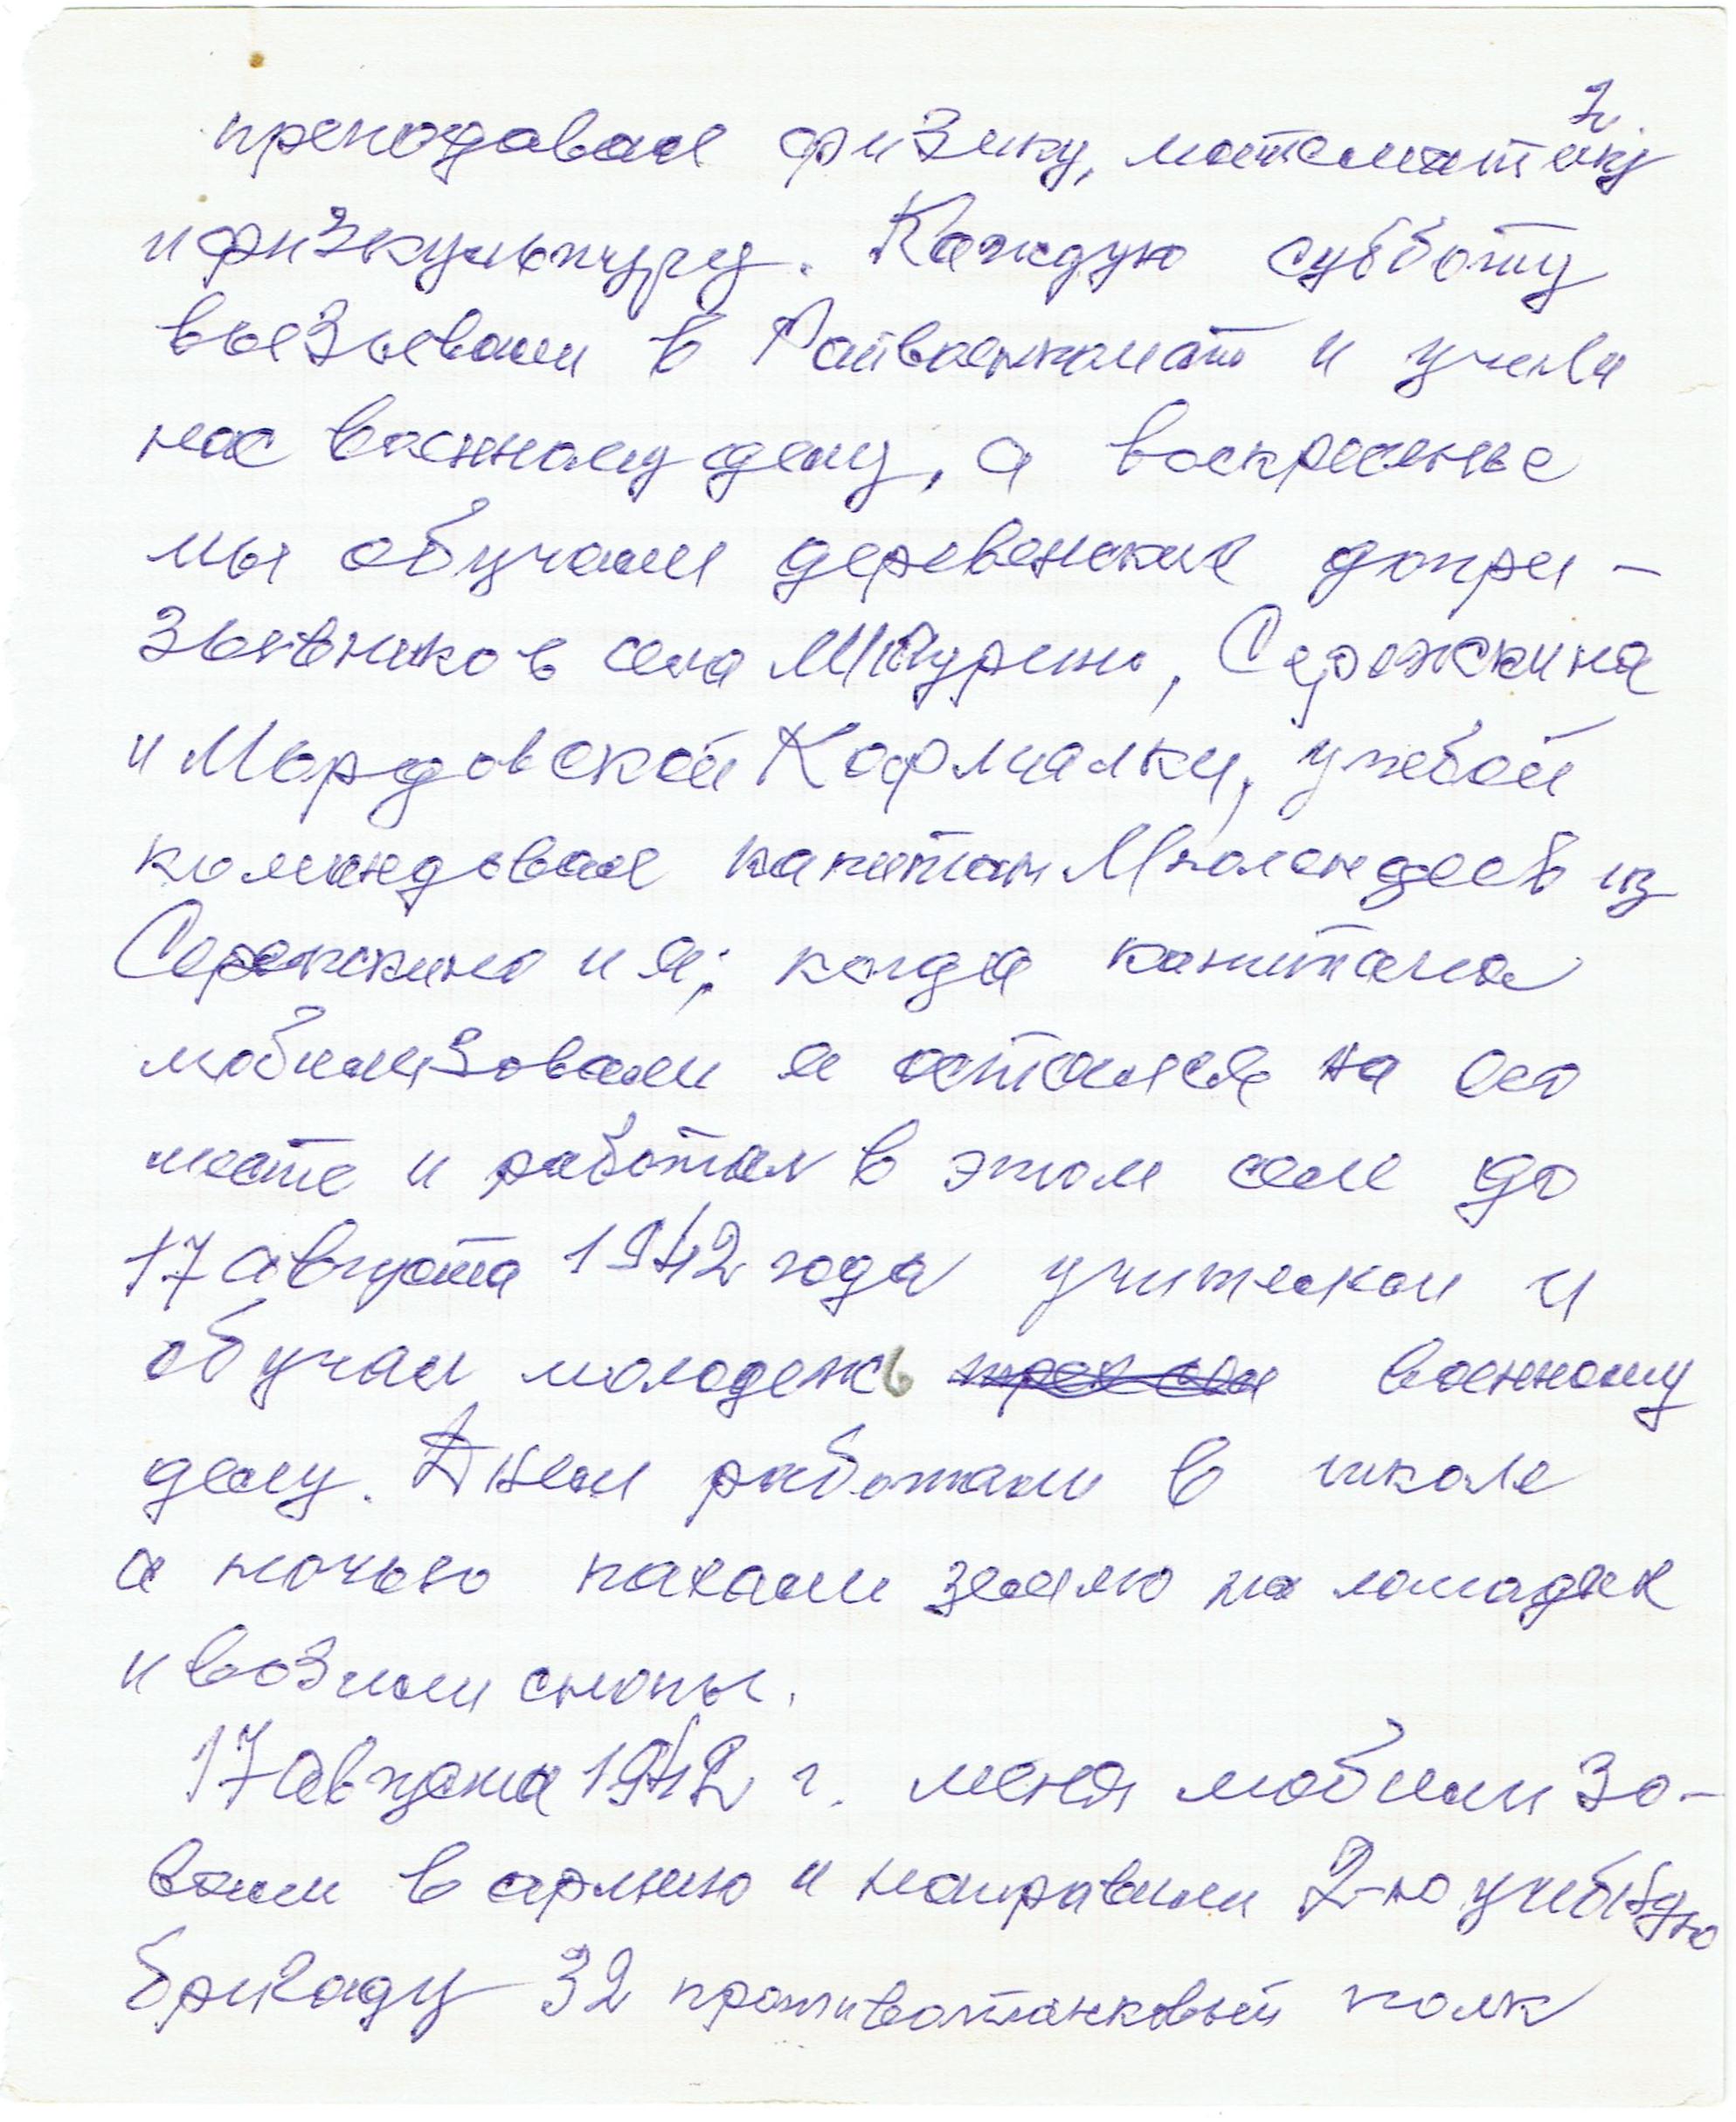 2.
преподавал физику, математику
и физкультуру. Каждую субботу
вызывали в Райвоенкомат и учили
нас военному делу, а воскресенье
мы обучали деревенских допри-
зывников села Мичурино, Сережкина
и Мордовской Кармалки, учебой
командовал капитан из
Сережкино и я; когда капитана
мобилизовали я остался на его
месте и работал в этом селе до
17 августа 1942 года учителем и
обучал молодежь трех сел военному
делу. Днем работали в школе
а ночью пахали землю на лошадях
и возили снопы.
17 августа 1942 г. меня мобилизо-
вали в армию и направили 2-ю учебную
бригаду 32 противотанковый полк